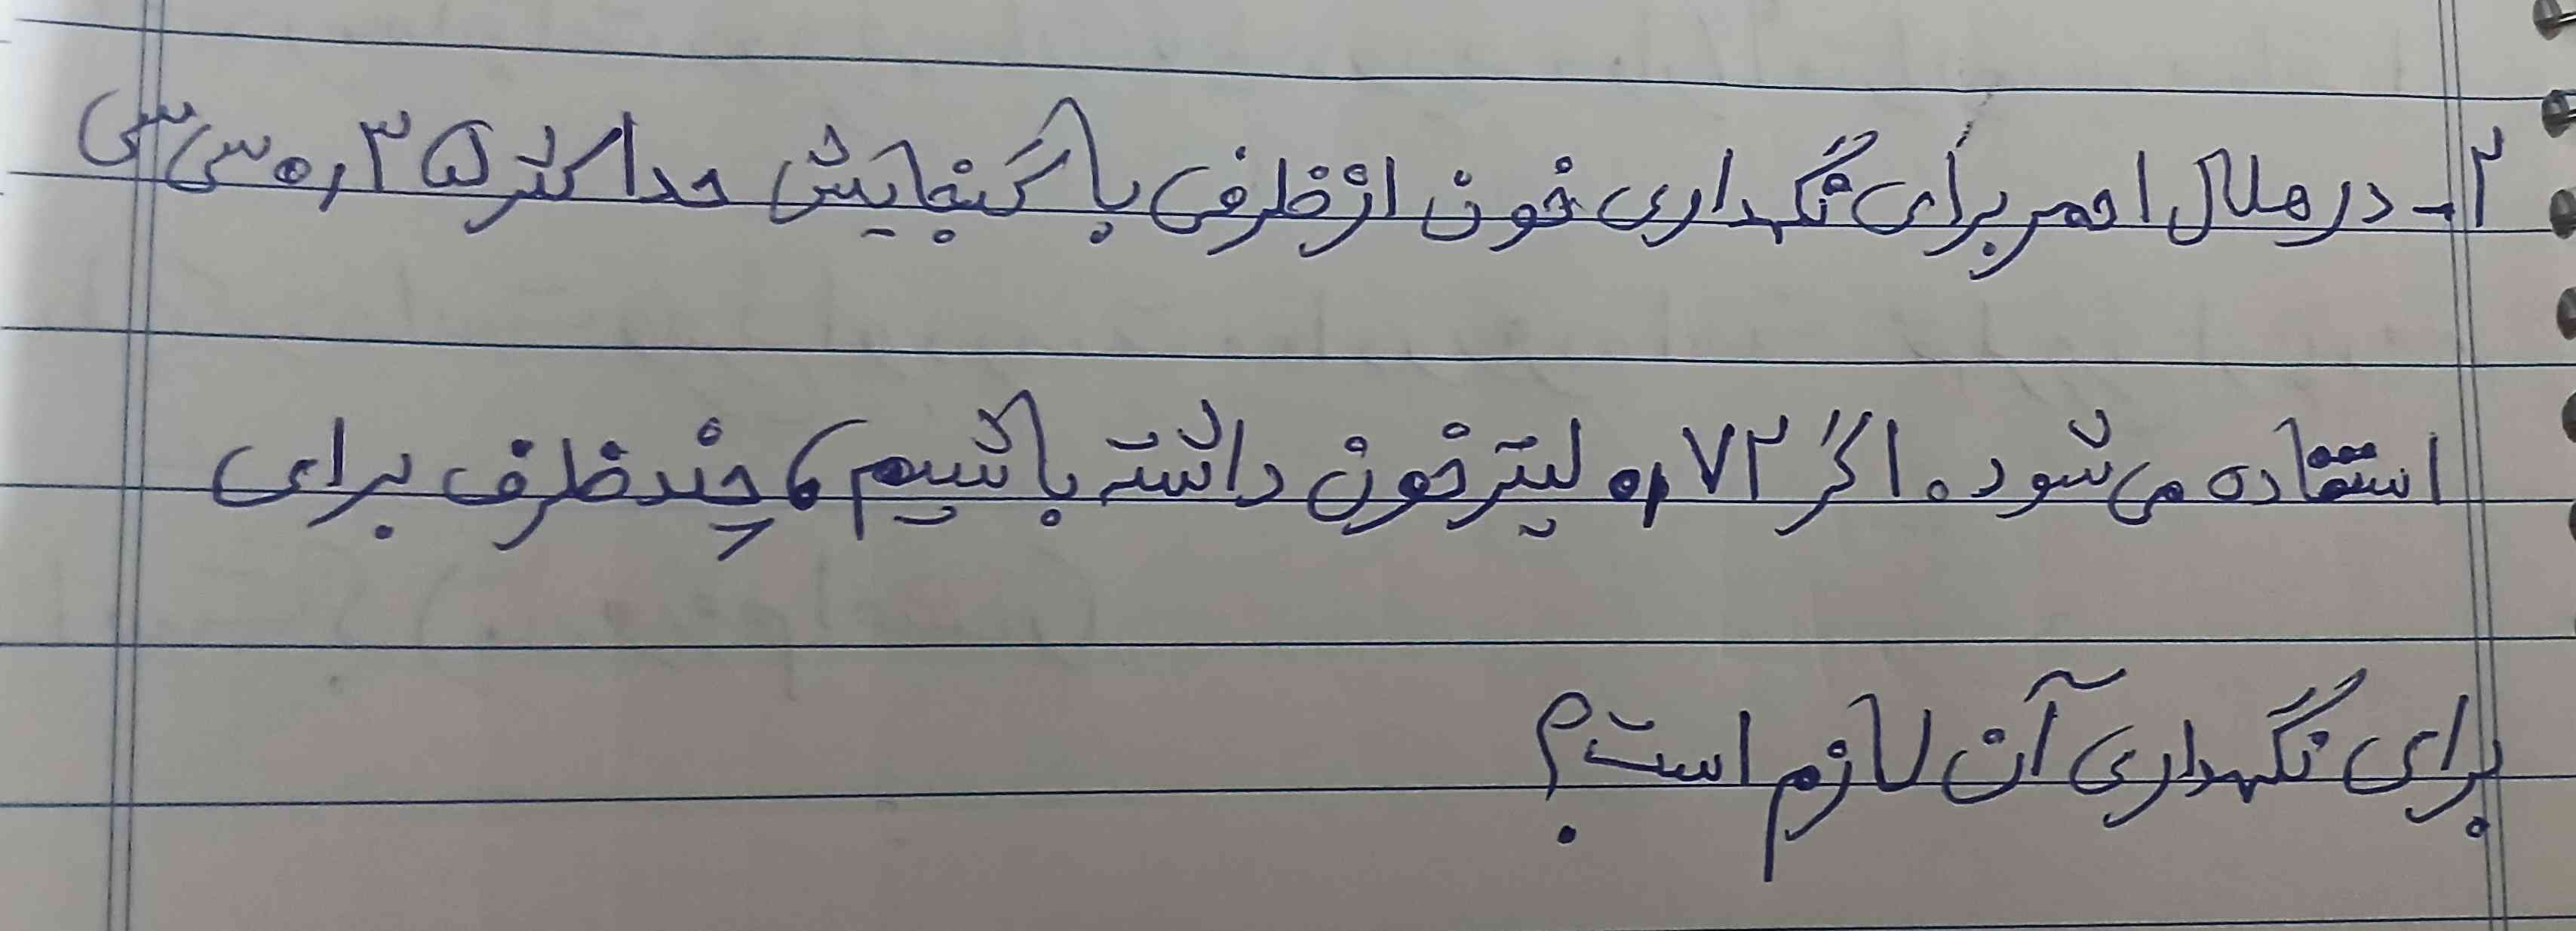 ۲- در هلال احمر برای نگهداری خون از ظرفی با گنجایش حداکثر ۰٫۳۵ سی سی
استفاده می شود. اگر ۰٫۷۲ لیتر خون داشته باشیم، چند ظرف برای
برای نگهداری آن لازم است؟